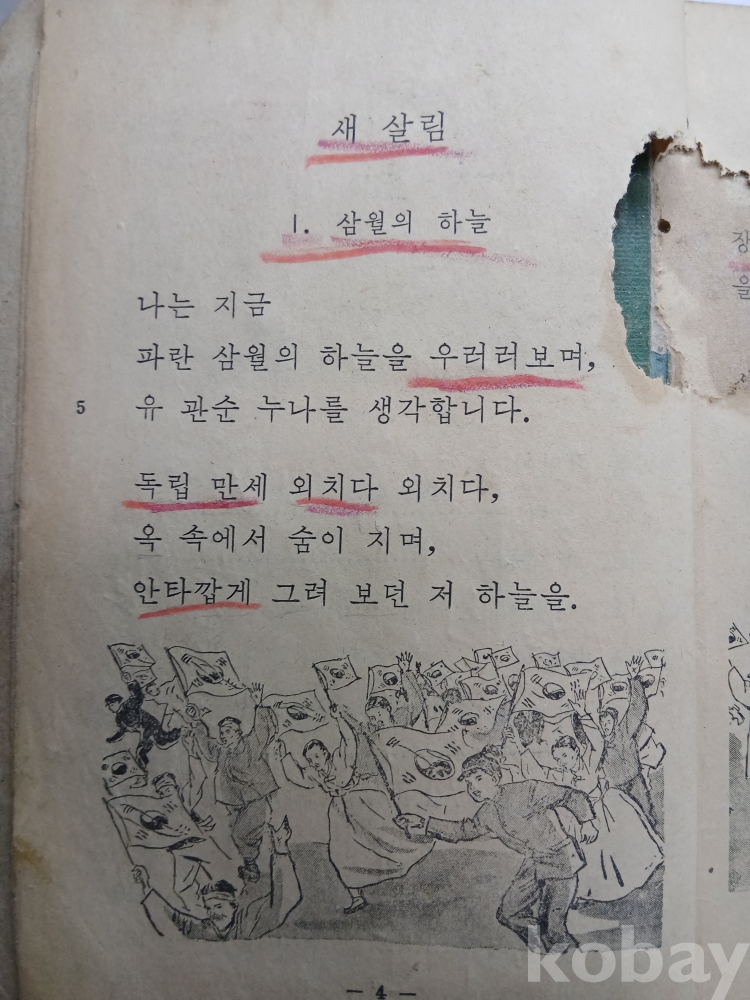 새 살림
1. 삼월의 하늘
나는 지금
파란 삼월의 하늘을 우러러보며,
5 유 관순 누나를 생각합니다.
독립 만세 외치다 외치다,
옥 속에서 숨이 지며,
안타깝게 그려 보던 저 하늘을.
- 4 -
장
을
kobay